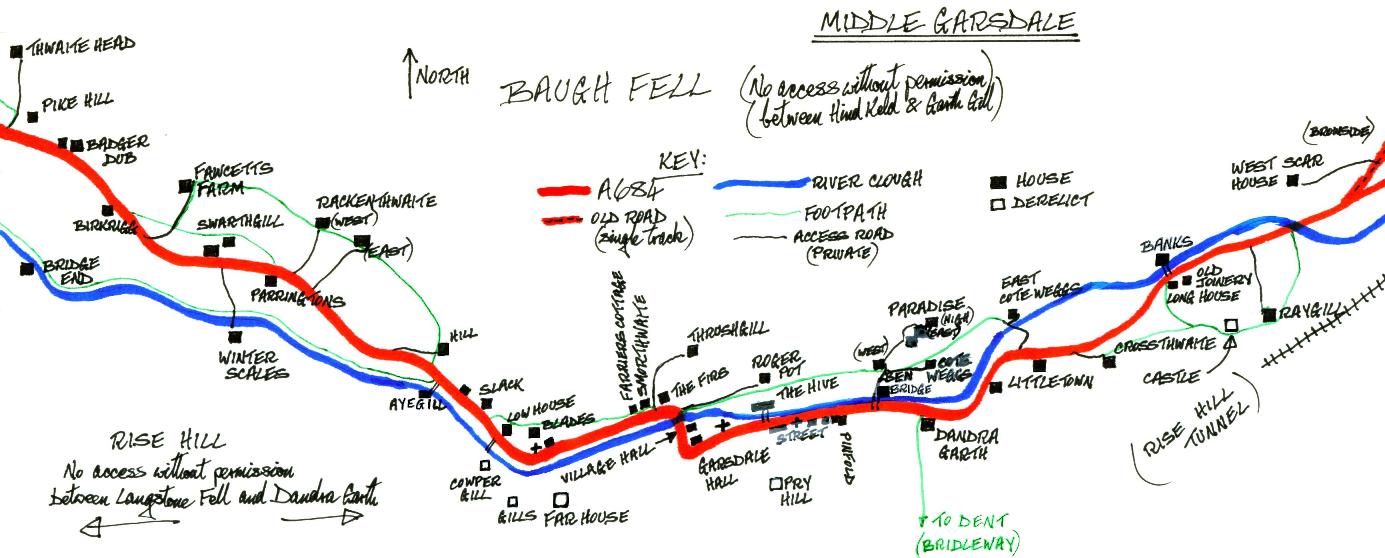 MIDDLE GARSDALE
THWAITE HEAD
NORTH
BAUGH FELL
(No access without permission)
(between Hind Keld & Garth Gill)
PIKE HILL
BADGER
DUB
KEY:
A684
OLD ROAD
(single track)
RIVER CLOUGH
FOOTPATH
ACCESS ROAD
(PRIVATE)
HOUSE
DERELICT
(BROWSIDE)
WEST SCAR
HOUSE
FAWCETTS
FARM
RACKENTHWAITE
(WEST)
(EAST)
BIRKRIGG
SWARTHGILL
BRIDGE
END
PARRINGTONS
WINTER
SCALES
HILL
AYEGILL
SLACK
LOW HOUSE
BLADES
FARRIERS COTTAGE
SMORTHWAITE
THRUSHGILL
THE FIRS
ROGER
POT
THE HIVE
PARADISE
(HIGH)
(EAST)
(WEST)
BEN
BRIDGE
COTE
WEGGS
EAST
COTE WEGGS
BANKS
OLD
JOINERY
LONG HOUSE
RAYGILL
CROSSTHWAITE
CASTLE
LITTLETOWN
RISE HILL
TUNNEL
DANDRA
GARTH
PINFOLD
STREET
GARSDALE
HALL
PRY
HILL
VILLAGE HALL
COWPER
GILL
GILLS
FAR HOUSE
RISE HILL
No access without permission
between Langstone Fell and Dandra Garth
TO DENT
(BRIDLEWAY)